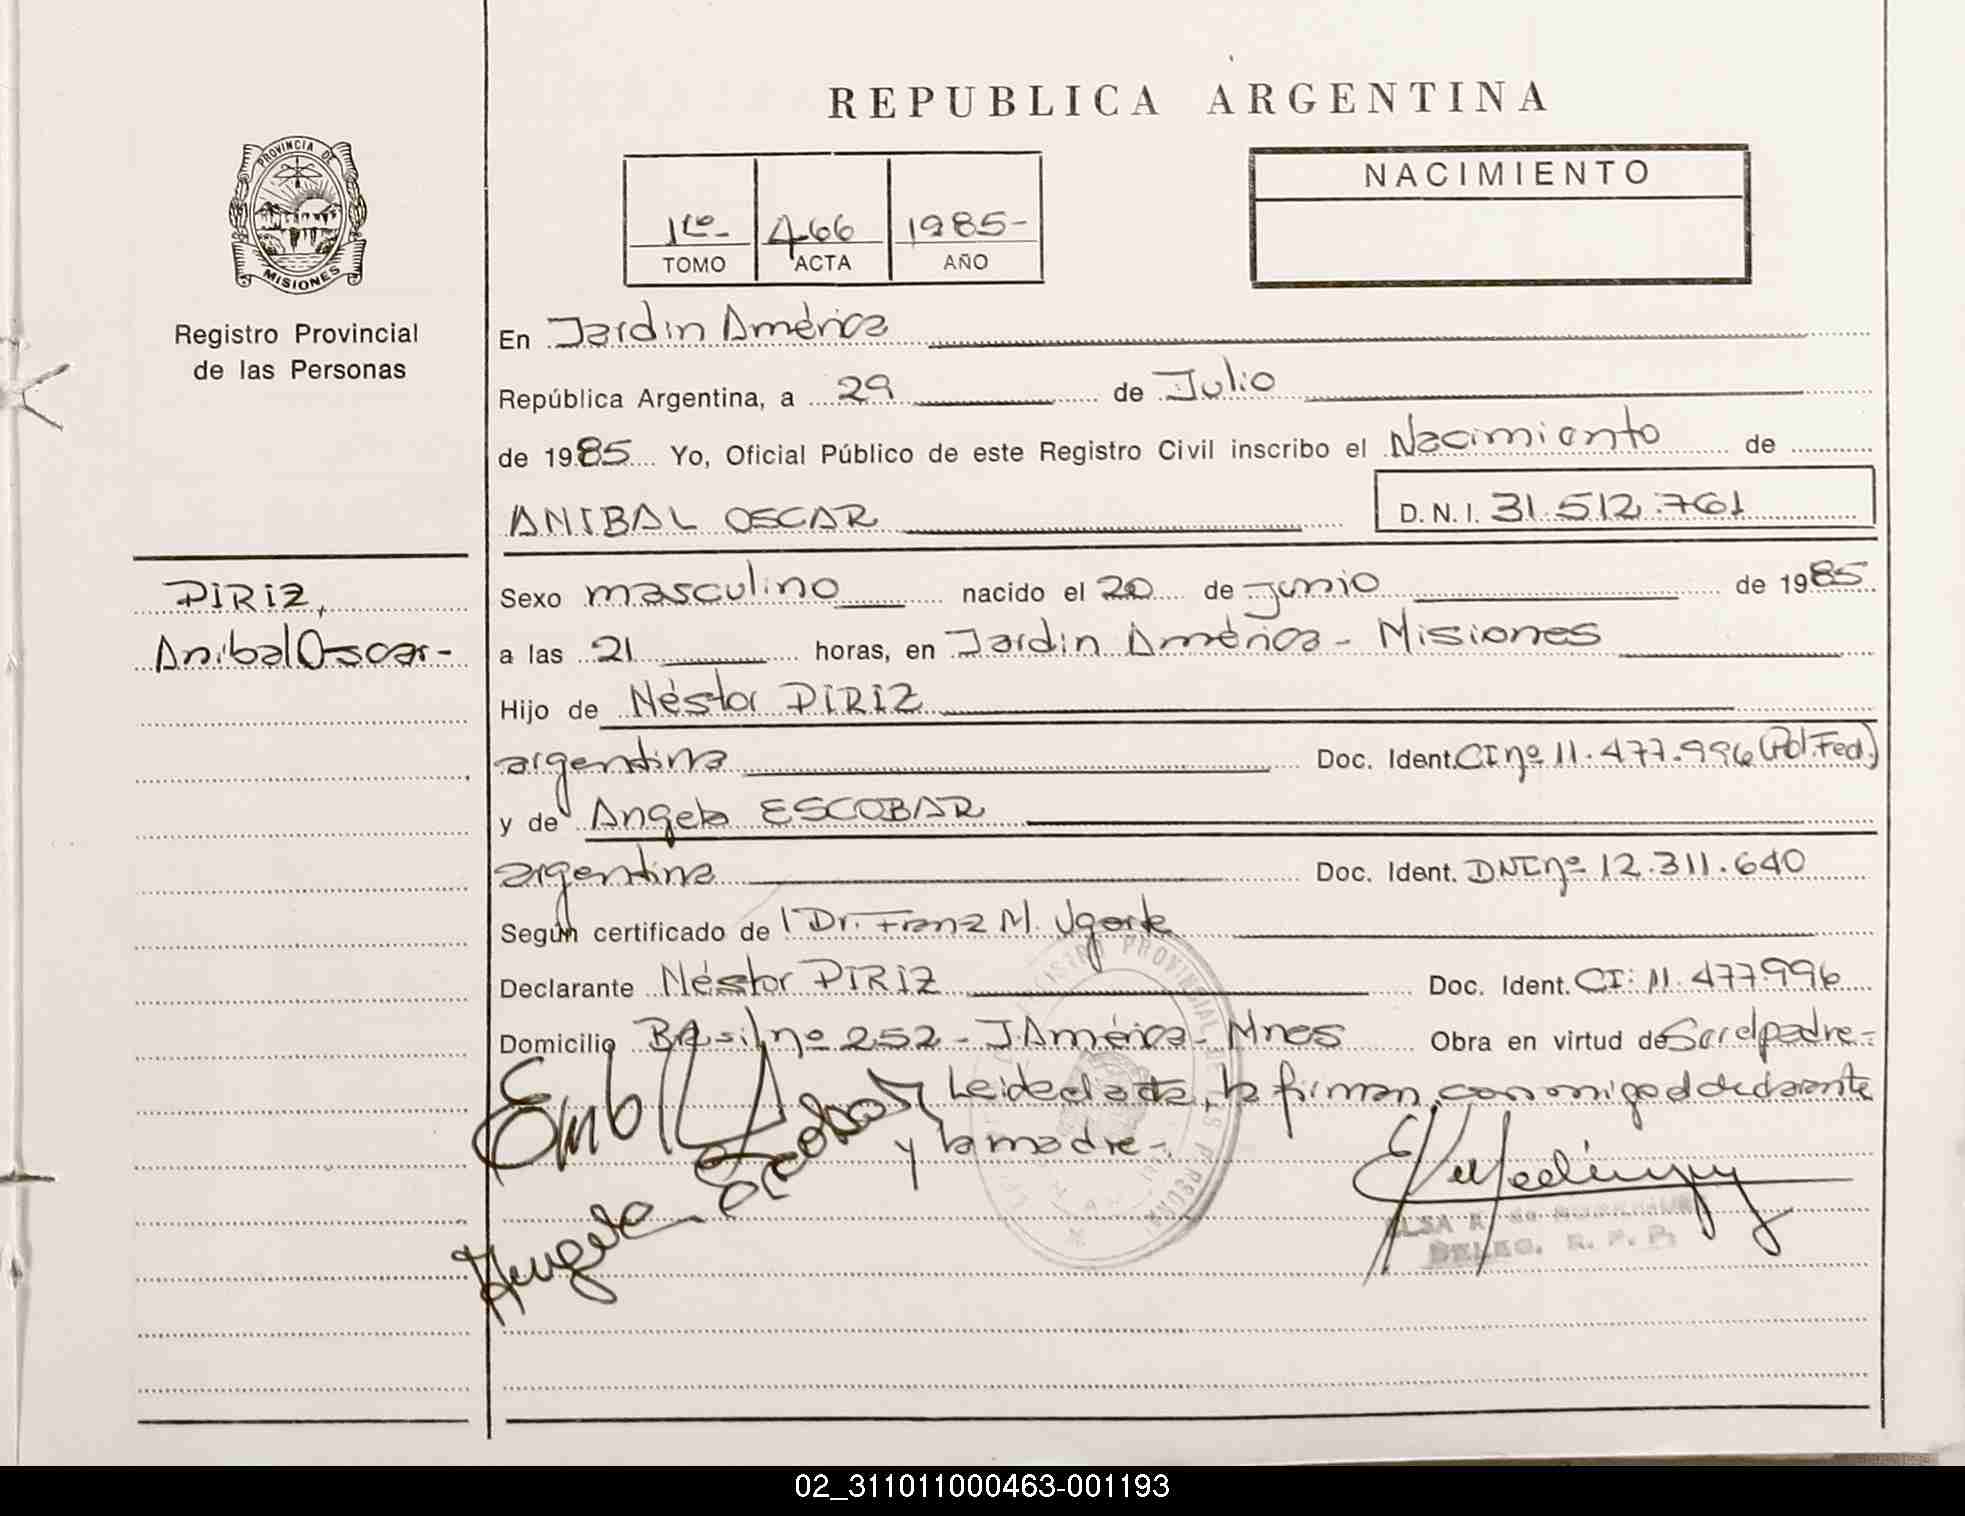 REPUBLICA ARGENTINA
PROVINCIA DE
MISIONES
Registro Provincial
de las Personas
1ro- 466 1985-
TOMO ACTA AÑO
NACIMIENTO
En Jardin América
República Argentina, a 29 de Julio
de 1985 Yo, Oficial Público de este Registro Civil inscribo el Nacimiento de
ANIBAL OSCAR D.N.I. 31.512.761
PIRIZ,
Anibal Oscar-
Sexo masculino nacido el 20 de junio de 1985
a las 21 horas, en Jardin América - Misiones
Hijo de Néstor PIRIZ
argentina Doc. Ident. CI nº 11.477.996 (Pol. Fed.)
y de Angela ESCOBAR
argentina Doc. Ident. DNI nº 12.311.640
Según certificado de Dr. Franz M. Ugarte
Declarante Néstor PIRIZ Doc. Ident. CI: 11.477.996
Domicilio Brasil nº 252 - J. América - Mnes Obra en virtud de Ser el padre-
Leida el acta, la firman conmigo el declarante
y la madre-
Angela Escobar
ELSA R. de
DELEG. R. P. P.
REGISTRO PROVINCIAL DE LAS PERSONAS
02_311011000463-001193